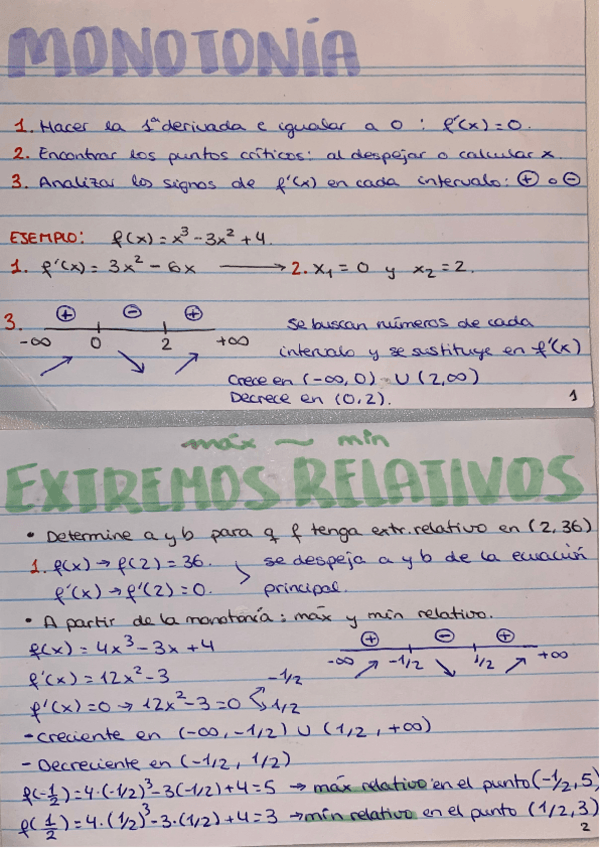 MONOTONÍA
1. Hacer la 1ª derivada e igualar a 0 : f'(x)=0.
2. Encontrar los puntos críticos: al despejar o calcular x.
3. Analizar los signos de f'(x) en cada intervalo: ⊕ o ⊖
EJEMPLO: f(x)=x³-3x²+4.
1. f'(x)=3x²-6x → 2. x₁=0 y x₂=2.
3. ⊕ ⊖ ⊕
-∞ 0 2 +∞
se buscan números de cada
intervalo y se sustituye en f'(x)
Crece en (-∞,0) U (2,∞)
Decrece en (0,2).
1
máx ~ mín
EXTREMOS RELATIVOS
• Determine a y b para q f tenga extr. relativo en (2,36)
1. f(x)→f(2)=36.
f'(x)→f'(2)=0.
se despeja a y b de la ecuación
principal.
• A partir de la monotonía: máx y mín relativo.
f(x)=4x³-3x+4
⊕ ⊖ ⊕
-∞ -1/2 1/2 +∞
f'(x)=12x²-3
f'(x)=0→12x²-3=0
-1/2
1/2
-Creciente en (-∞,-1/2) U (1/2,+∞)
-Decreciente en (-1/2, 1/2)
f(-1/2)=4·(-1/2)³-3(-1/2)+4=5 → máx relativo en el punto (-1/2,5)
f(1/2)=4·(1/2)³-3·(1/2)+4=3 → mín relativo en el punto (1/2,3)
2